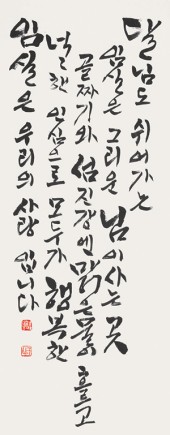 달님도 쉬어가는
임실은 그리운 님이 사는 곳
골짜기와 섬진강엔 맑은물이 흐르고
넉넉한 인심으로 모두가 행복한
임실은 우리의 사랑 입니다